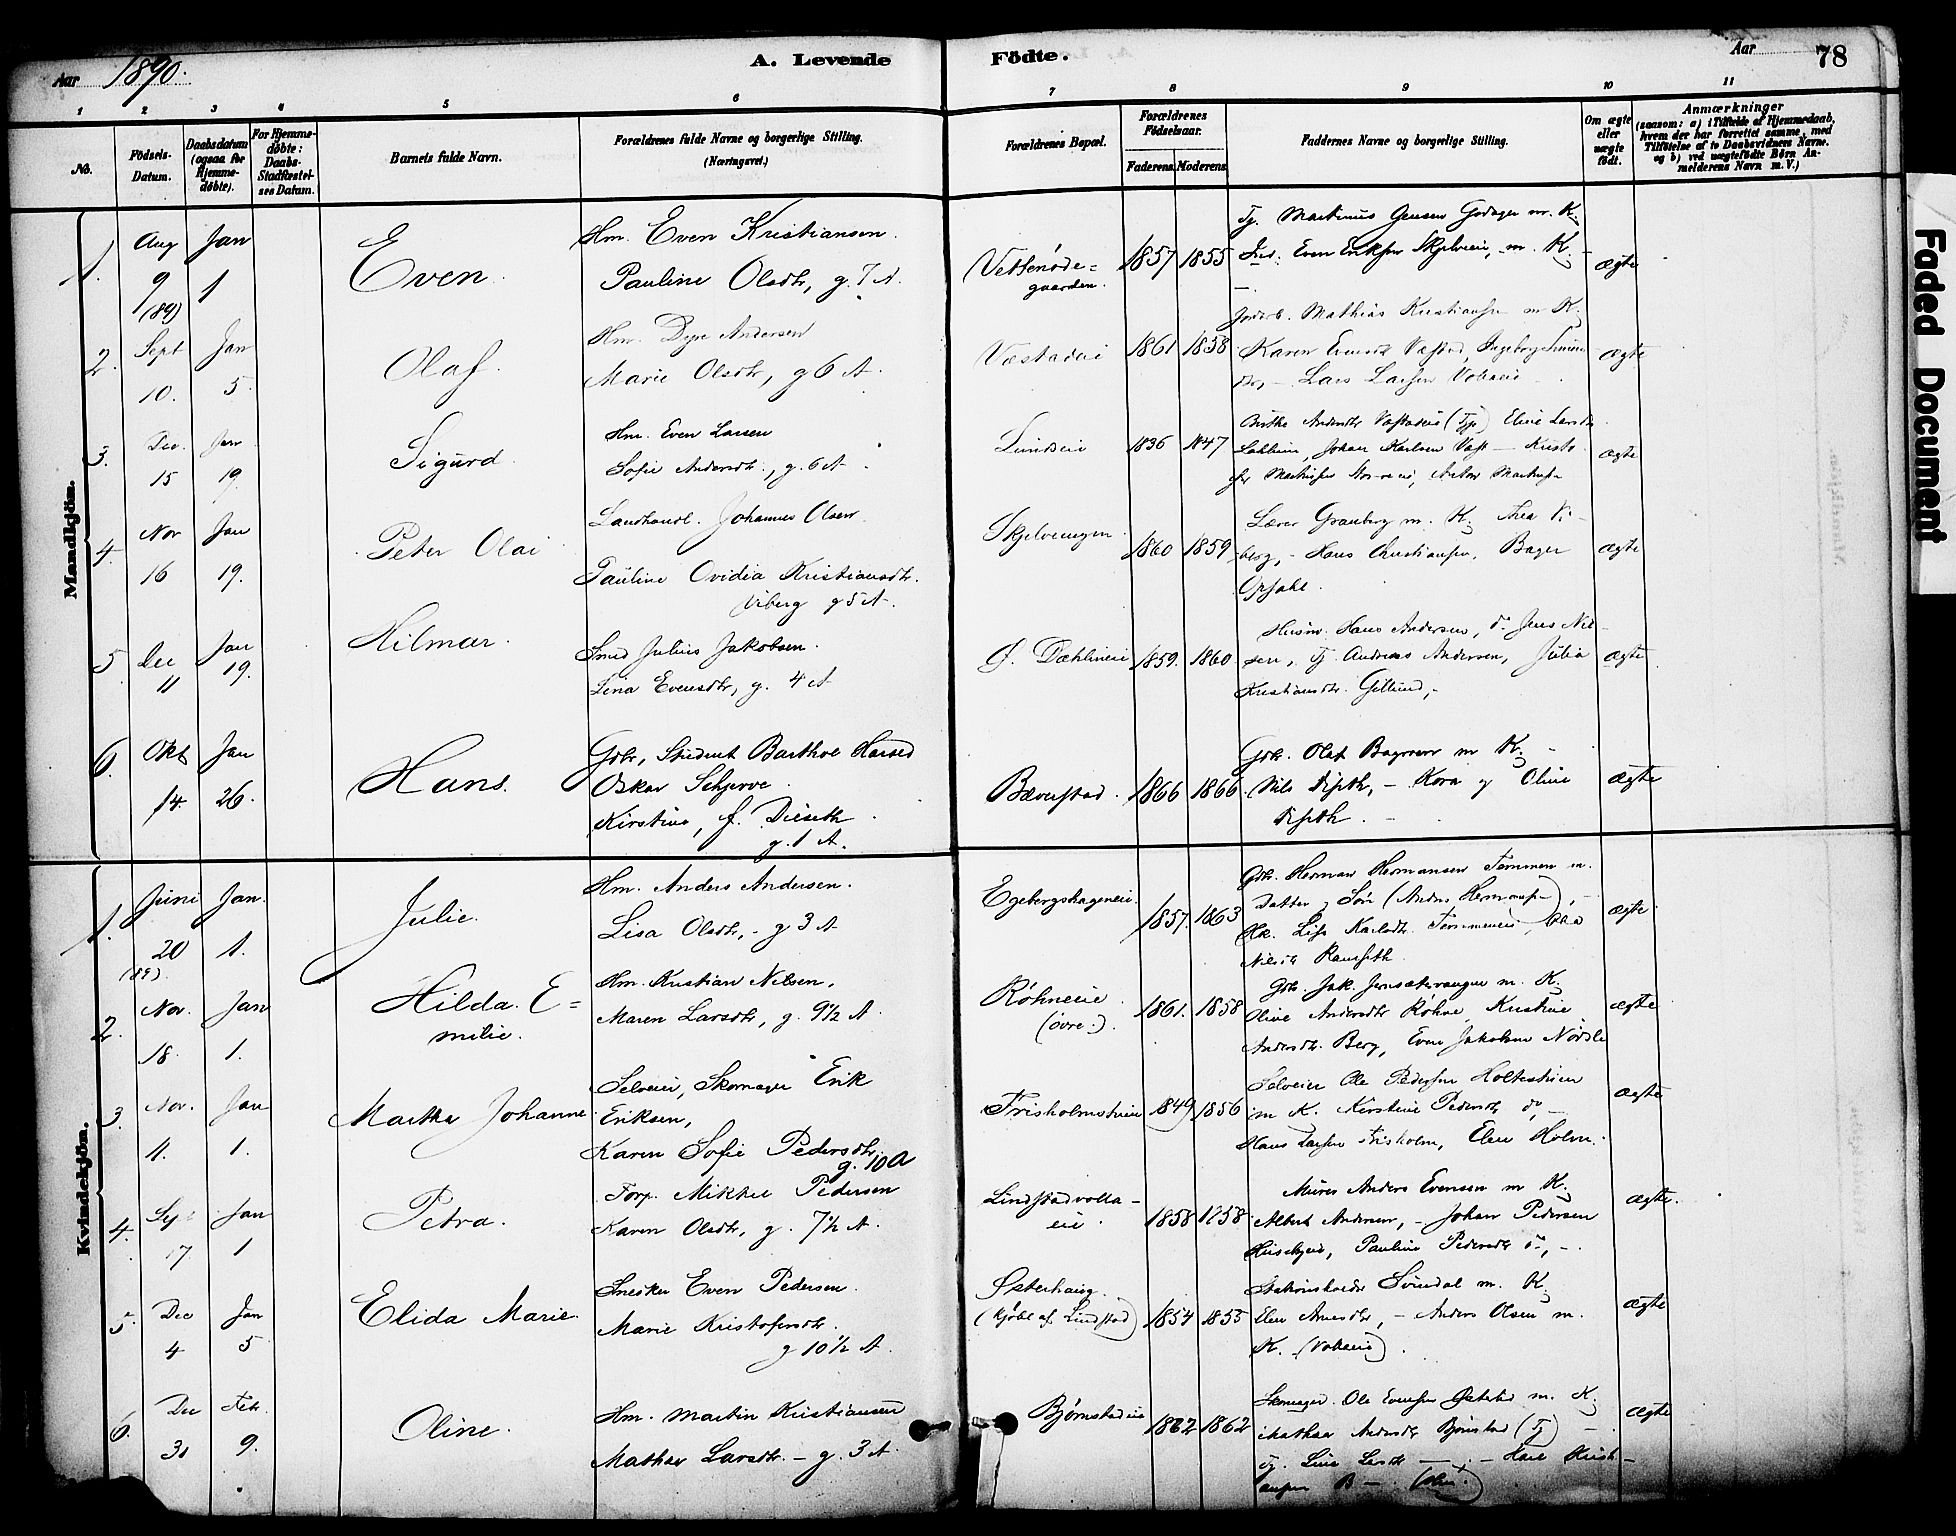 Aar 1890.
A. Levende Födte.
Aar 78
1 2 3 4 5 6 7 8 9 10 11
No.
Födsels-Datum.
Daabsdatum (ogsaa for Hjemme-døbte).
For Hjemme-døbte: Daabs-Stadfæstel-ses Datum.
Barnets fulde Navn.
Forældrenes fulde Navne og borgerlige Stilling. (Næringsvei.)
Forældrenes Bopæl.
Forældrenes Födselsaar.
Faderens Moderens
Faddernes Navne og borgerlige Stilling.
Om ægte eller uægte födt.
Anmærkninger
(saasom: a) i Tilfælde af Hjemmedaab, hvem der har forrettet samme, med Tilföielse af to Daabsvidners Navne. og b) ved uægtefödte Børn An-melderens Navn m. V.)
Mandkjön.
1. Aug 9 (89) Jan 1
Even.
Hm. Even Kristiansen.
Pauline Olsdtr, g. 7 A.
gaarden.
1857 1855
Tj. Martinus Jensen Godager m. K.
Even Eriksen Skjelveie, m. K.
ægte
2. Sept 10. Jan 5.
Olaf.
Hm. Dyre Andersen
Marie Olsdtr, g 6 A.
Væstadeie
1861 1858
Mathias Kristiansen m K.
Karen Evensdt Væstad, Ingeborg
Lars Larsen
ægte
3. Dec. 15 Jan 19.
Sigurd.
Hm. Even Larsen
Sofie Andersdtr., g. 6 A.
Lundseie
1836 1847
Birthe Andersdtr Væstadeie (Tj) Eline Larsdtr
Johan Karlsen
ægte
4. Nov 16 Jan 19.
Peter Olai
Landhandl. Johannes Olsen
Pauline Ovidia Kristiansdtr.
Viberg g 5 A.
Skjelvengen
1860 1859
Lærer Granberg m. K. Thea Vi-
berg, - Hans Christiansen, Bager
Opsahl.
ægte
5 Dec 11 Jan 19.
Hilmar.
Smed Julius Jakobsen.
Lena Evensdtr, g. 4 A
Ø. Dæhlineie
1859. 1860.
Husm. Hans Andersen, do Jens Niel-
sen, Tj. Andreas Andersen, Julia
Kristiansdtr. Gillund, -
ægte
6. Okt 14. Jan 26.
Hans.
Gbr, Student Barthol Harsed
Oskar Schjerve.
Kirstine, f. Diseth
g. 1 A.
Bæverstad.
1866 1866
Gbr. Olaf Bagroen m K.
Nils Diseth, - Kora og Oline
Diseth.
ægte
Kvindekjön.
1. Juni 20 (89). Jan. 1.
Julie.
Hm. Anders Andersen.
Lisa Olsdtr, - g 3 A
Egebergshageneie.
1857. 1863
Gbr. Herman Hermansen Tommen m.
Datter og Søn (Anders Hermansen), -
Nilsdt Ramseth.
ægte
2. Nov. 18. Jan 1.
Hilda E=
milie.
Hm. Kristian Nilsen,
Maren Larsdtr, g. 9½ A.
Røhneeie
(øvre.).
1861. 1858
Gbr. Jak. Jernsætervangen m. K.
Oline Andersdtr Røhne, Kristine
Andersdtr. Berg, Even Jakobsen
ægte
3. Nov. 1. Jan 1.
Martha Johanne
Selveier, Skomager Erik
Eriksen,
Karen Sofie Pedersdtr.
g. 10 A
Frisholmstuen
1849 1856
Selveier Ole Pedersen Holtestuen
m K. Kirstine Pedersdtr do, -
Hans Larsen Frisholm, Elen Holm.
ægte
4. Sept 17 Jan 1
Petra.
Torp. Mikkel Pedersen
Karen Olsdtr, g. 7½ A.
Lindstadvolla-
eie.
1858 1858.
Murer Anders Evensen m K.
Albert Andersen, - Johan Pedersen
Pauline Pedersdtr do, -
ægte.
5. Dec 4 Jan 5
Elida Marie
Snedker Even Pedersen.
Marie Kristofersdtr.
g 10½ A.
Østerhaug.
(kjøbt af Lindstad)
1854 1855
Stationsholder Svendal m. K.
Elen Arnesdtr, - Anders Olsen m.
K.
ægte
6. Dec 31 Febr. 9.
Oline.
Hm. Martin Kristiansen
Mathea Larsdtr. - g. 3 A.
Bjørnstadeie
1862 1862
Skomager. Ole Evensen m. K.
Mathea Andersdtr Bjørnstad (Tj)
ægte
Faded Document